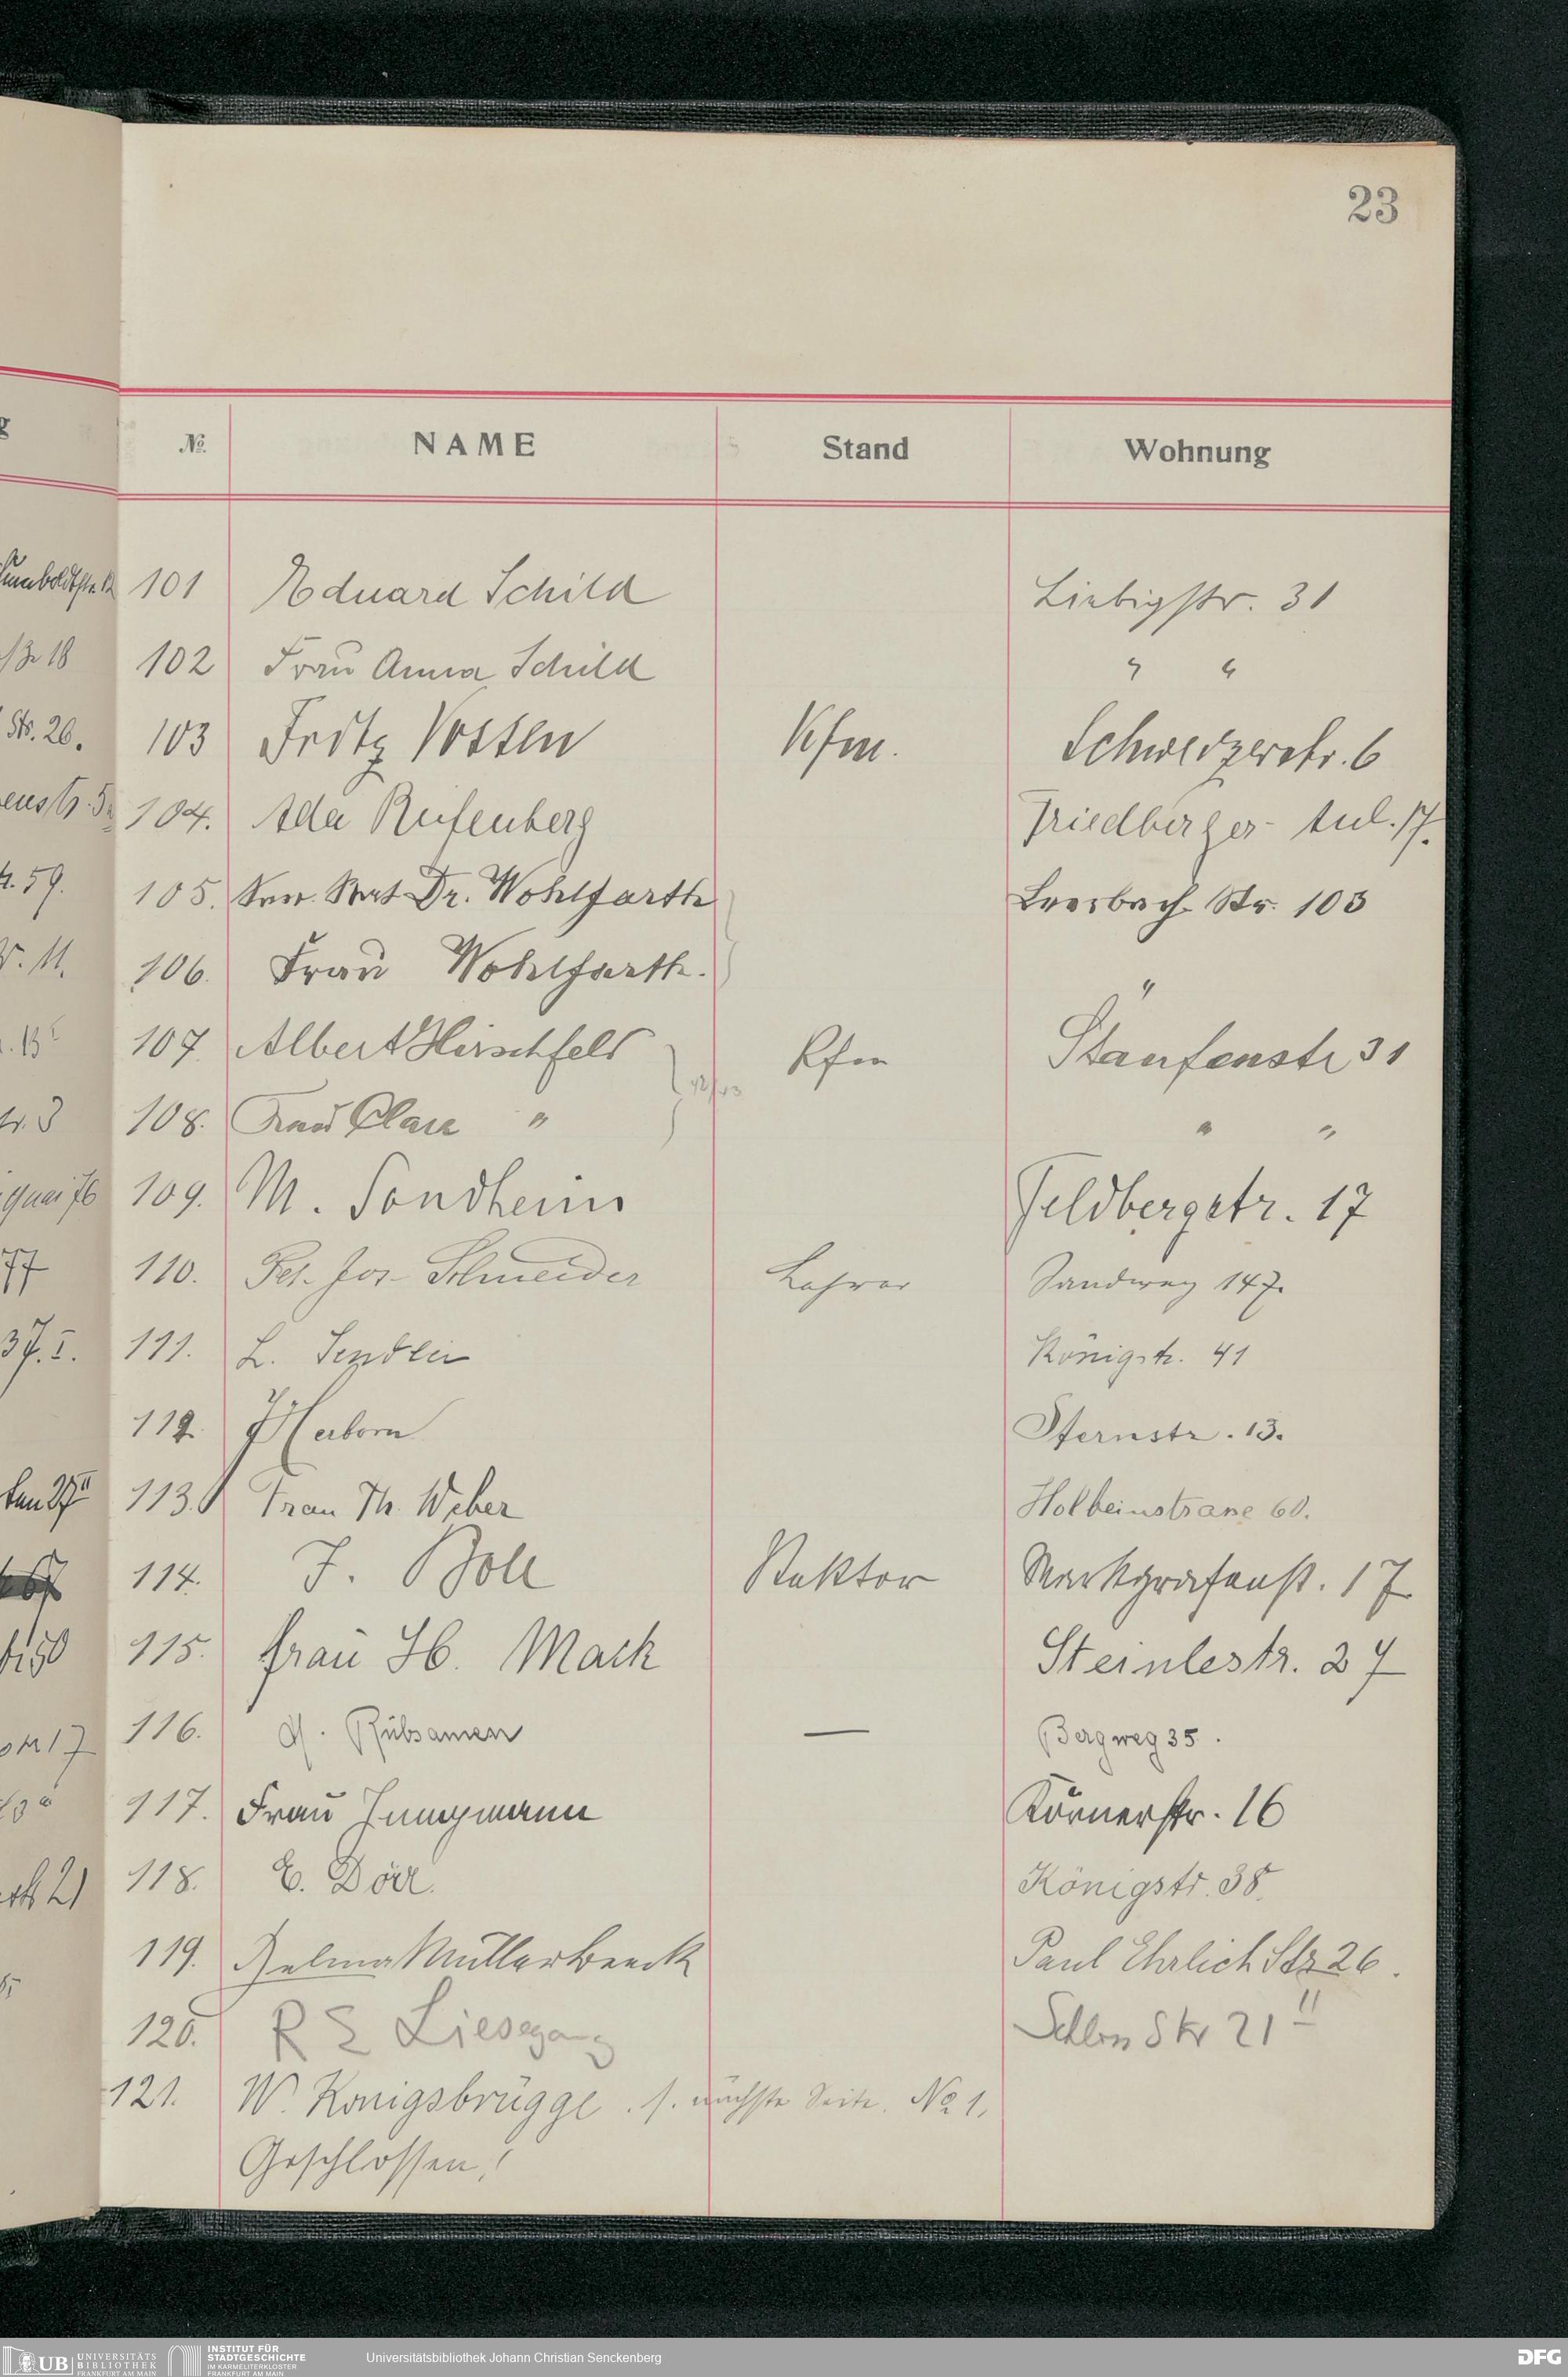 23
№ NAME Stand Wohnung
101 Eduard Schild Liebigstr. 31
102 Frau Anna Schild " "
103 Fritz Vosten Kfm. Schweizerstr. 6
104. Ada Rufenberg Friedberger- Anl. 17.
105. San. Rat Dr. Wohlfarth Leerbach Str. 103
106. Frau Wohlfarth. "
107. Albert Hirschfeld Kfm Staufenstr 31
108. Frau Clara " " "
109. M. Sondheim Feldbergstr. 17
110. Jos. Schneider Lehrer Sandweg 147.
111. L. Königstr. 41
112. J Herborn Sternstr. 13.
113. Frau Th. Weber Holbeinstrasse 60.
114. J. Boll Rektor Markgrafenst. 17
115. Frau H. Mack Steinlestr. 27
116. A. Rübsamen — Bergweg 35.
117. Frau Jungmann Körnerstr. 16
118. E. Dörr. Königstr. 38.
119. Helma Müllerbeeck Paul Ehrlich Str 26.
120. R E Liesegang Schloss Str 21 II
121. W. Königsbrügge. s. nächste Seite. No 1.
Geschlossen!
UB UNIVERSITÄTS BIBLIOTHEK FRANKFURT AM MAIN
INSTITUT FÜR STADTGESCHICHTE IM KARMELITERKLOSTER FRANKFURT AM MAIN
Universitätsbibliothek Johann Christian Senckenberg
DFG